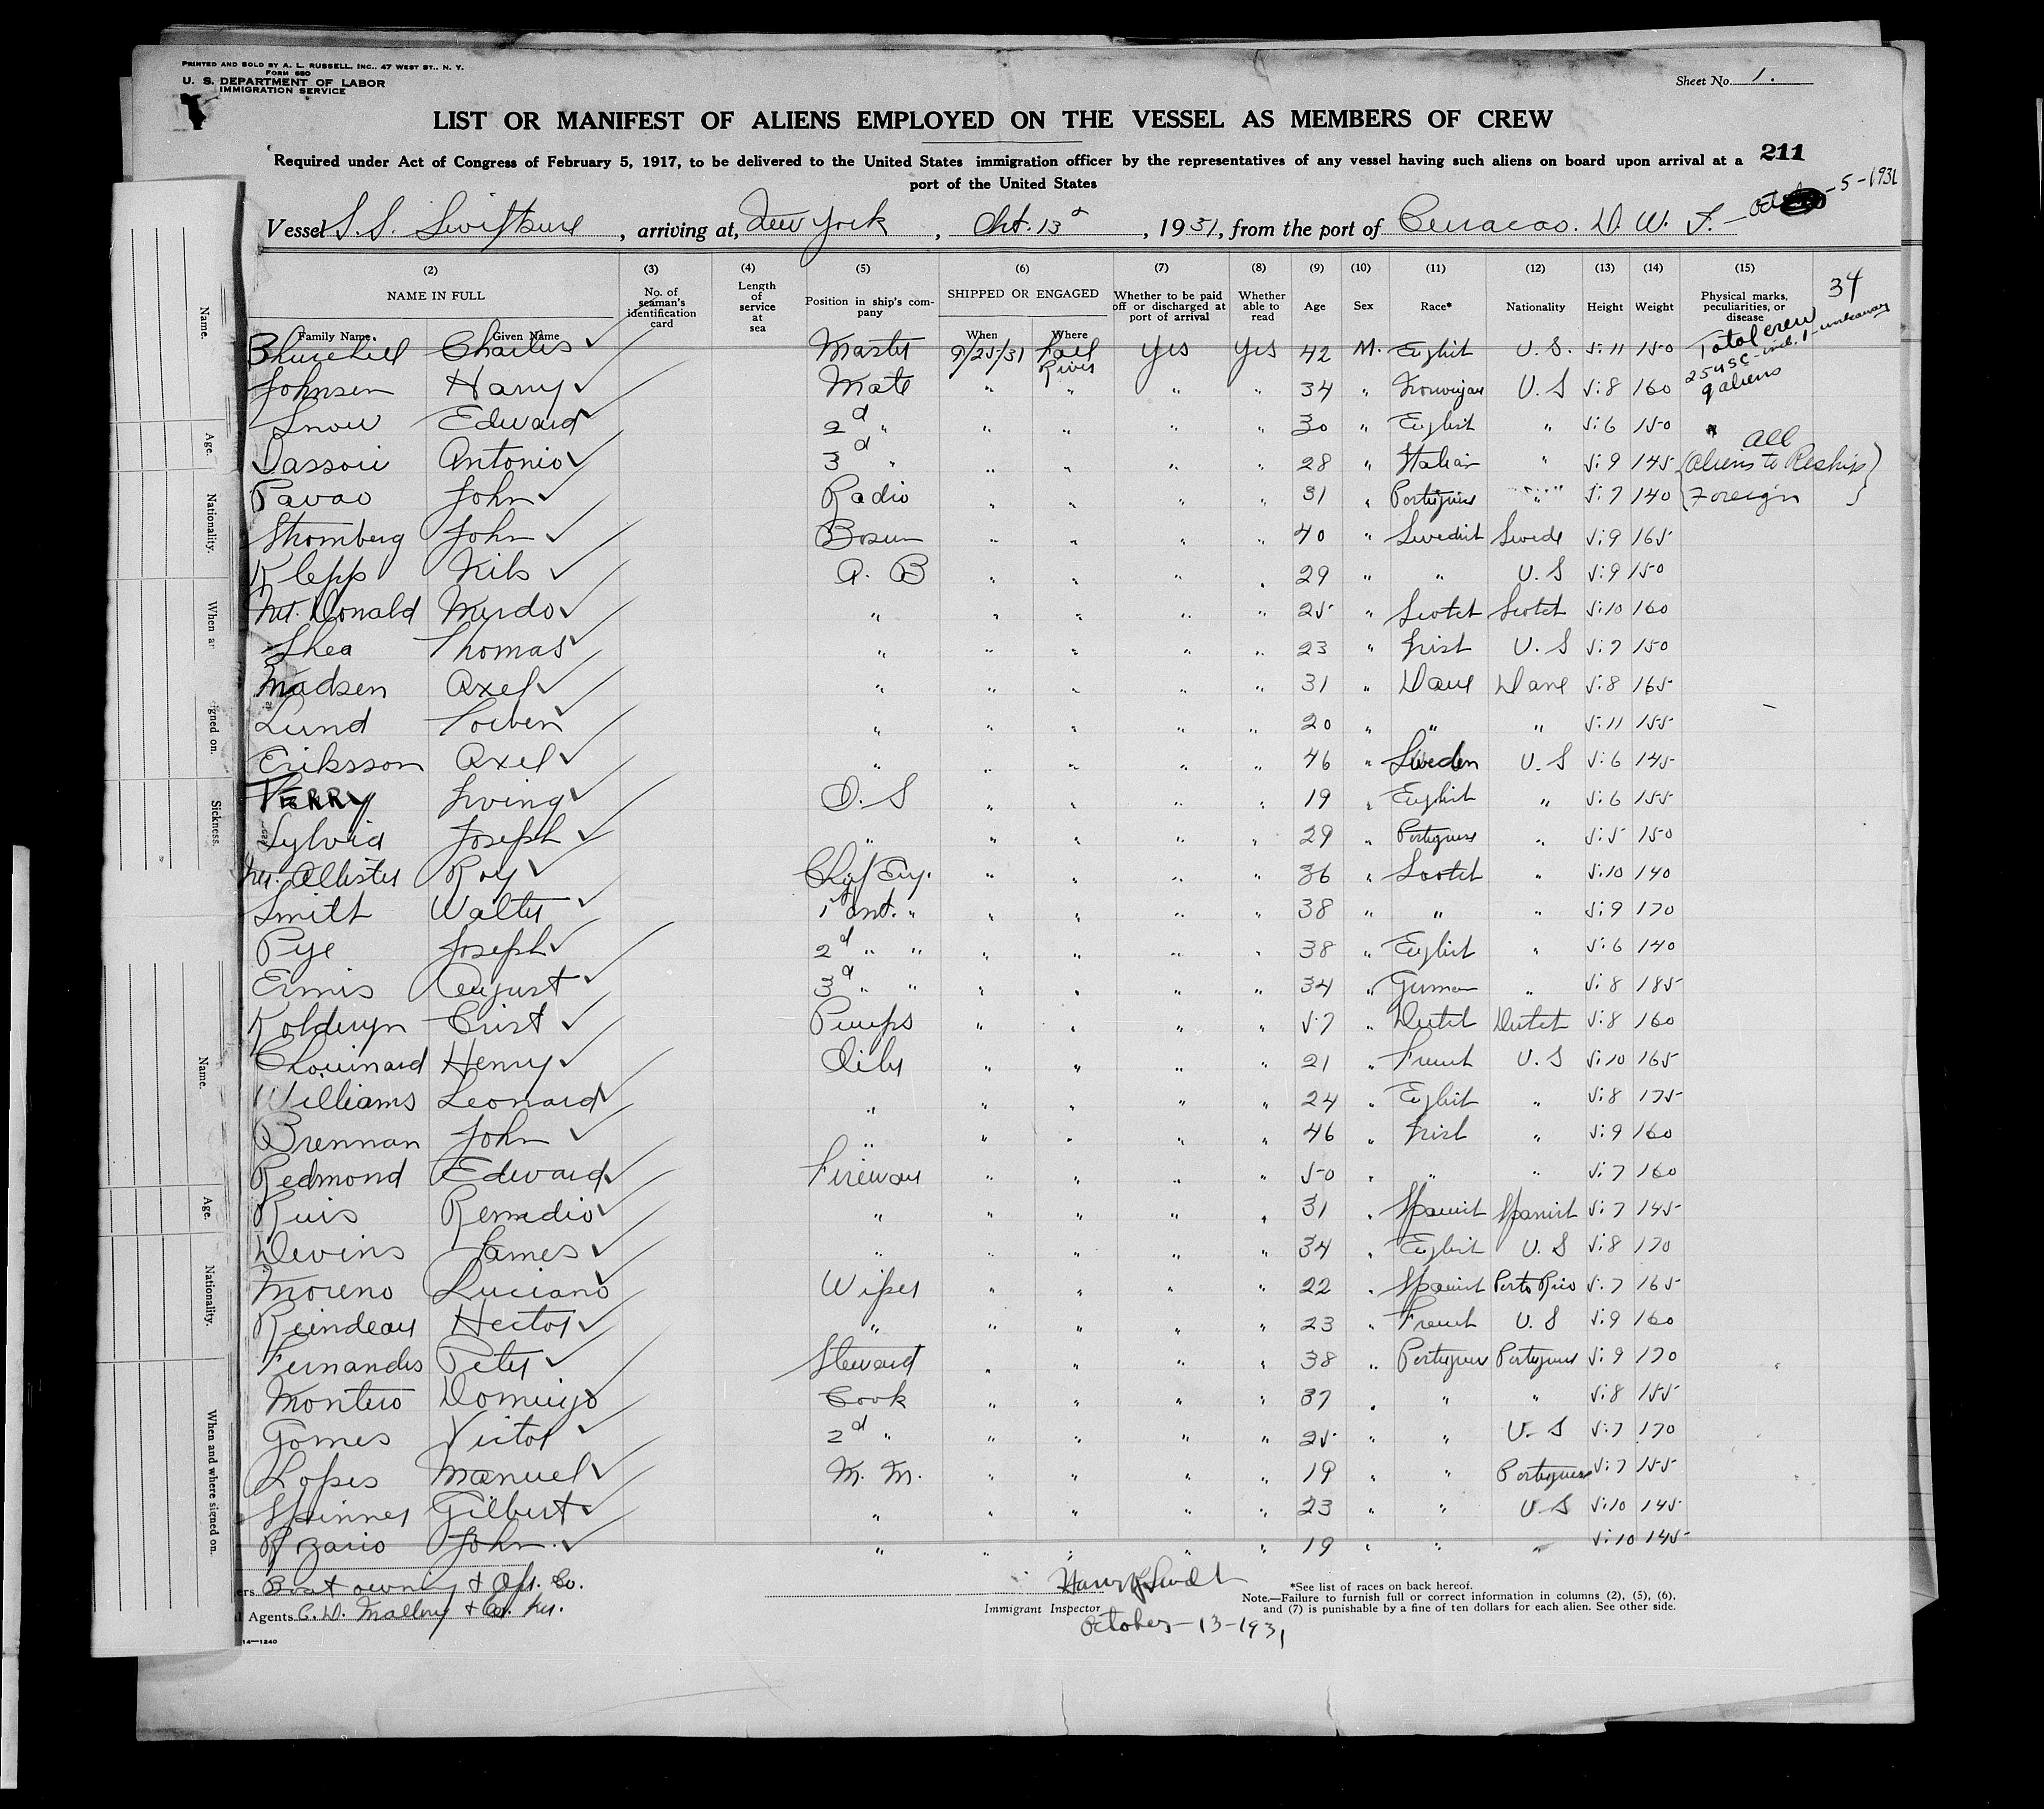 PRINTED AND SOLD BY A. L. RUSSELL, INC., 47 WEST ST., N. Y.
FORM 680
U. S. DEPARTMENT OF LABOR
IMMIGRATION SERVICE
Sheet No. 1.
LIST OR MANIFEST OF ALIENS EMPLOYED ON THE VESSEL AS MEMBERS OF CREW
Required under Act of Congress of February 5, 1917, to be delivered to the United States immigration officer by the representatives of any vessel having such aliens on board upon arrival at a
port of the United States
211
Vessel S.S. Swiftsure, arriving at, New York, Oct. 13, 1931, from the port of Curacao. D. W. I. - 5 - 1931
(2) (3) (4) (5) (6) (7) (8) (9) (10) (11) (12) (13) (14) (15)
NAME IN FULL
Family Name, Given Name
No. of seaman's identification card
Length of service at sea
Position in ship's company
SHIPPED OR ENGAGED
When Where
Whether to be paid off or discharged at port of arrival
Whether able to read
Age
Sex
Race*
Nationality
Height
Weight
Physical marks, peculiarities, or disease
34
Total crew
25 USC - incl. 1 - workaway
9 aliens
all
(aliens to Reship)
Foreign
Churchill Charles Master 9/25/31 Fall River Yes Yes 42 M. English U. S. 5:11 150
Johnsen Harry Mate " " " " 34 " Norwegian U. S 5:8 160
Snow Edward 2d " " " " " 30 " English " 5:6 150
Antonio 3d " " " " " 28 " Italian " 5:9 145
Pavao John Radio " " " " 31 " Portuguese " 5:7 140
Stromberg John Bosun " " " " 40 " Swedish Swede 5:9 165
Klepp Nils A. B " " " " 29 " " U. S 5:9 150
Mc. Donald Murdo " " " " " 25 " Scotch Scotch 5:10 160
Shea Thomas " " " " " 23 " Irish U. S 5:7 150
Madsen Axel " " " " " 31 " Dane Dane 5:8 165
Lund Torben " " " " " 20 " " " 5:11 155
Eriksson Axel " " " " " 46 " Sweden U. S 5:6 145
Perry Irving O. S " " " " 19 " English " 5:6 155
Sylvia Joseph " " " " " 29 " Portuguese " 5:5 150
Mc. Allister Roy Chief Eng. " " " " 36 " Scotch " 5:10 140
Smith Walter 1 Ast. " " " " " 38 " " " 5:9 170
Pye Joseph 2d " " " " " " 38 " English " 5:6 140
Ermis August 3d " " " " " " 34 " German " 5:8 185
Koldewyn Crist Pumps " " " " 57 " Dutch Dutch 5:8 160
Chouinard Henry Oiler " " " " 21 " French U. S 5:10 165
Williams Leonard " " " " " 24 " English " 5:8 175
Brennan John " " " " " 46 " Irish " 5:9 160
Redmond Edward Fireman " " " " 50 " " " 5:7 160
Ruis Remedio " " " " " 31 " Spanish Spanish 5:7 145
Devins James " " " " " 34 " English U. S 5:8 170
Moreno Luciano Wiper " " " " 22 " Spanish Porto Rico 5:7 165
Reindeau Hector " " " " " 23 " French U. S 5:9 160
Fernandes Peter Steward " " " " 38 " Portuguese Portuguese 5:9 170
Monteiro Domingo Cook " " " " 37 " " " 5:8 155
Gomes Victor 2d " " " " " 25 " " U. S 5:7 170
Lopes Manuel M. M. " " " " 19 " " Portuguese 5:7 155
Spinner Gilbert " " " " " 23 " " U S 5:10 145
Rozario John " " " " " 19 " " " 5:10 145
ers Boat owning & Op. Co.
l Agents C. D. Mallory & Co. Inc.
14—1240
Immigrant Inspector
October - 13 - 1931
*See list of races on back hereof.
Note.—Failure to furnish full or correct information in columns (2), (5), (6),
and (7) is punishable by a fine of ten dollars for each alien. See other side.
Name.
Age.
Nationality.
When ar
igned on.
Sickness.
Name.
Age.
Nationality.
When and where signed on.